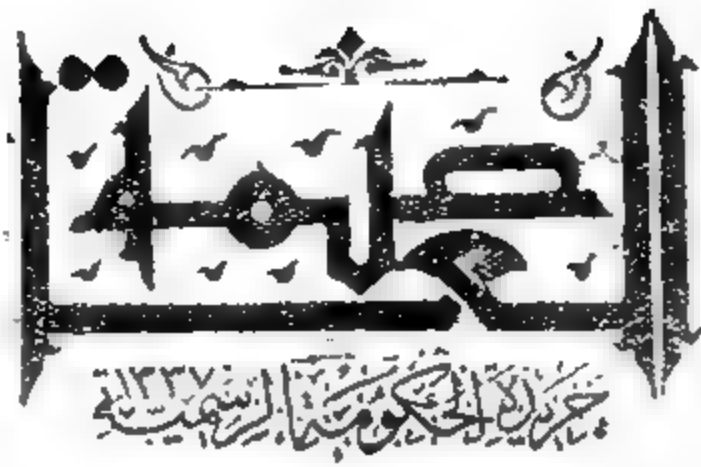 العاصمة
جريدة الحكومة الرسمية